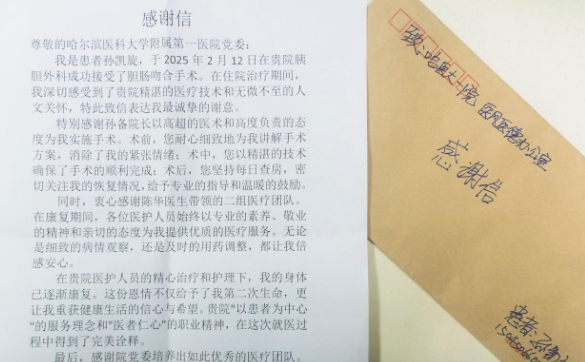 感谢信
尊敬的哈尔滨医科大学附属第一医院党委：
我是患者孙凯旋，于 2025 年 2 月 12 日在贵院胰
胆外科成功接受了胆肠吻合手术。在住院治疗期间，
我深切感受到了贵院精湛的医疗技术和无微不至的人
文关怀，特此致信表达我最诚挚的谢意。
特别感谢孙备院长以高超的医术和高度负责的态
度为我实施手术。术前，您耐心细致地为我讲解手术
方案，消除了我的紧张情绪；术中，您以精湛的技术
确保了手术的顺利完成；术后，您坚持每日查房，密
切关注我的恢复情况，给予专业的指导和温暖的鼓励。
同时，衷心感谢陈华医生带领的二组医疗团队。
在康复期间，各位医护人员始终以专业的素养、敬业
的精神和亲切的态度为我提供优质的医疗服务。无论
是细致的病情观察，还是及时的用药调整，都让我倍
感安心。
在贵院医护人员的精心治疗和护理下，我的身体
已逐渐康复。这份恩情不仅给予了我第二次生命，更
让我重获健康生活的信心与希望。贵院“以患者为中心
”的服务理念和“医者仁心”的职业精神，在这次就医过
程中得到了完美诠释。
最后，感谢院党委培养出如此优秀的医疗团队。
致：哈医大一院 医风医德办公室
感谢信
患者：孙